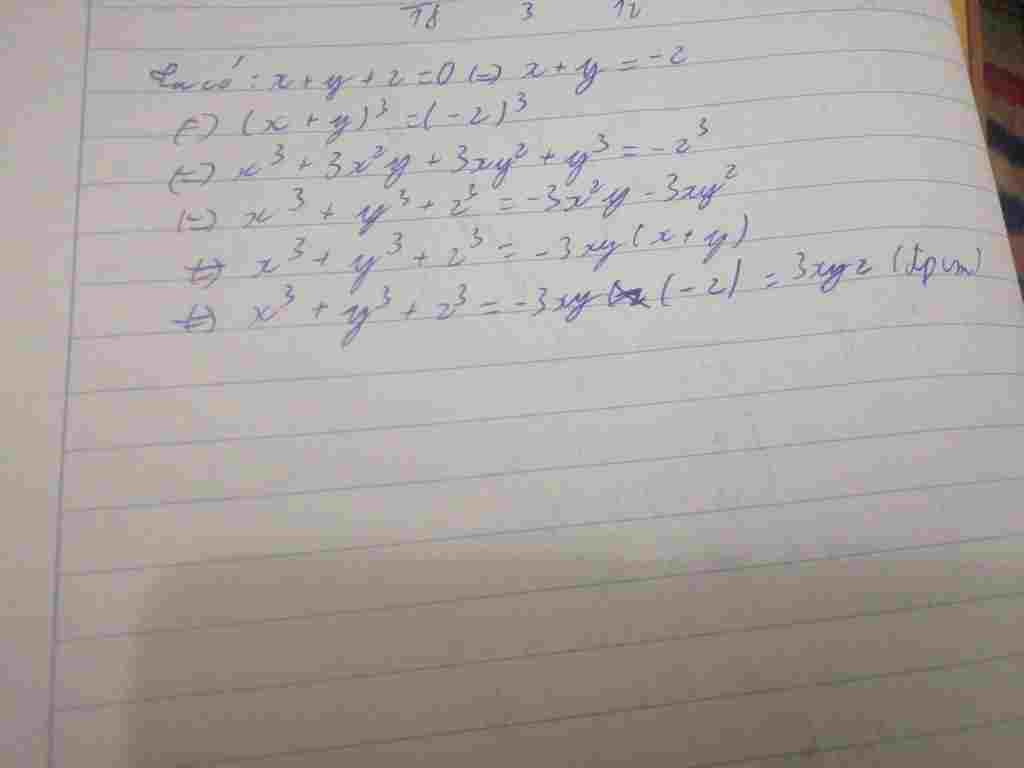 18 3 12
Ta có : x + y + z = 0 (=) x + y = -z
(=) (x + y)³ = (-z)³
(=) x³ + 3x²y + 3xy² + y³ = -z³
(=) x³ + y³ + z³ = -3x²y - 3xy²
(=) x³ + y³ + z³ = -3xy(x + y)
(=) x³ + y³ + z³ = -3xy (-z) = 3xyz (đpcm)